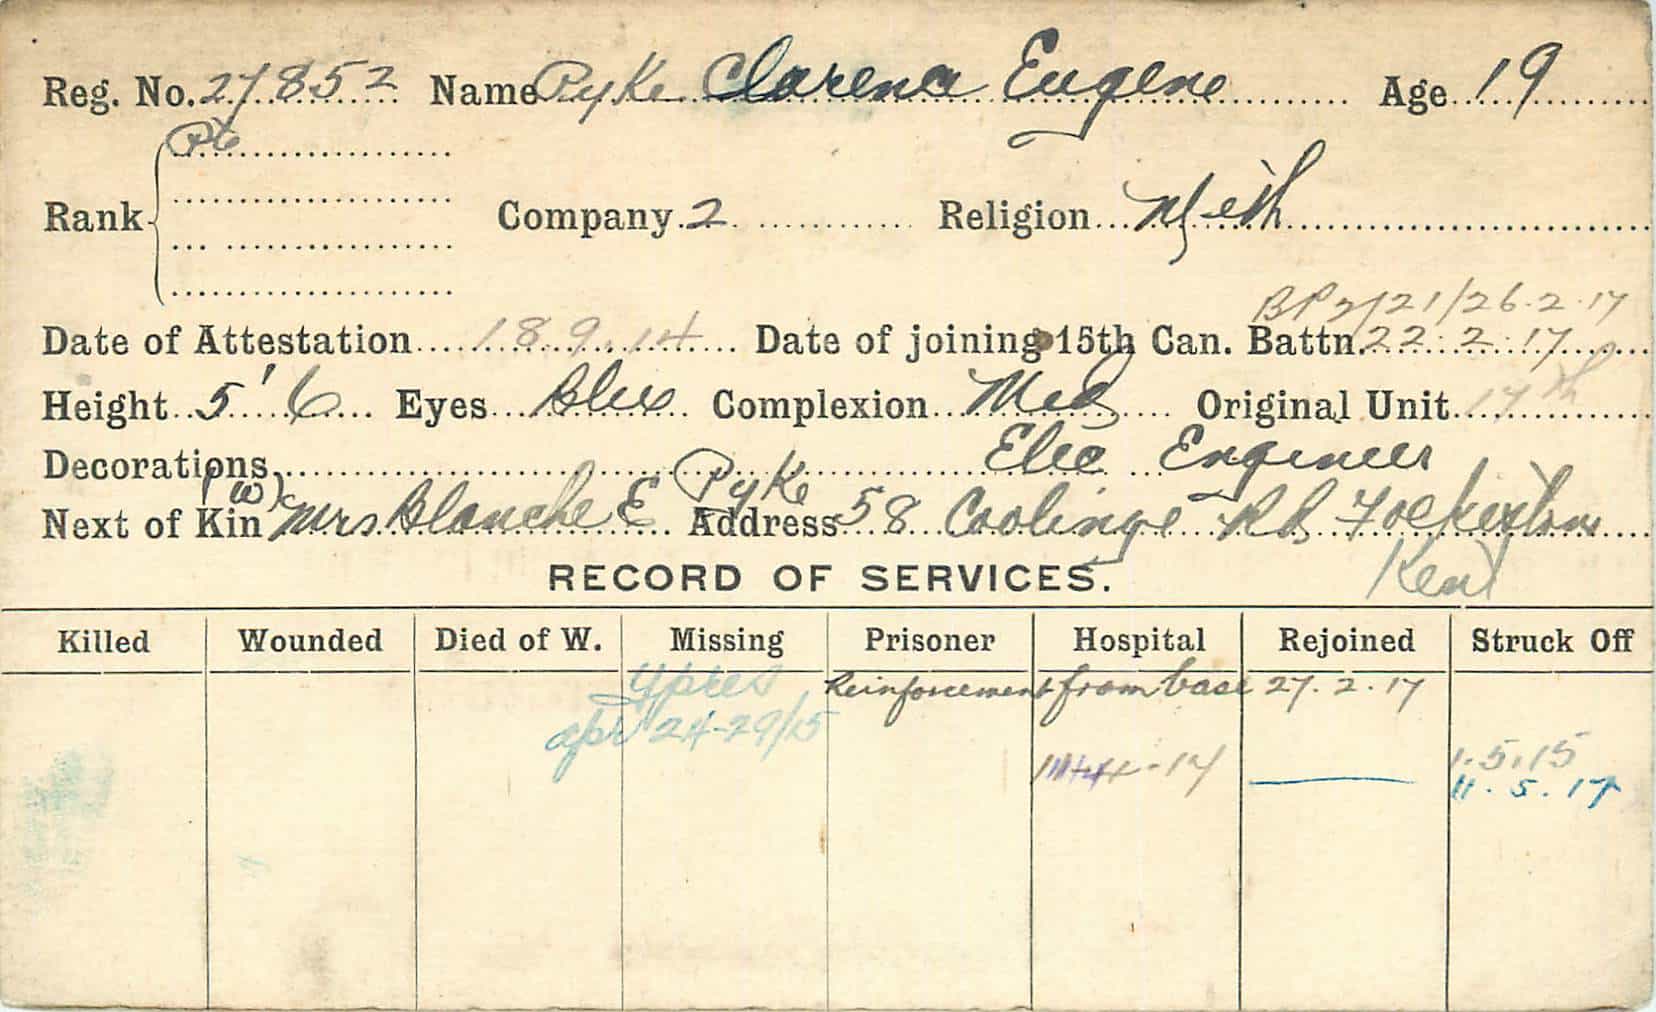 Reg. No. 27852 Name Pyke Clarence Eugene Age 19
Pte
Rank Company 2 Religion Meth
BP 2/21/26.2.17
Date of Attestation 18.9.14 Date of joining 15th Can. Battn. 22.2.17
Height 5' 6 Eyes Blue Complexion Med Original Unit 17th
Decorations Elec Engineer
Next of Kin (w) Mrs Blanche E Pyke Address 58 Coolinge Rd Folkestone
Kent
RECORD OF SERVICES.
Killed Wounded Died of W. Missing Prisoner Hospital Rejoined Struck Off
Ypres Reinforcement from base 27.2.17
apr 24-29/15
1.5.15
11.5.17